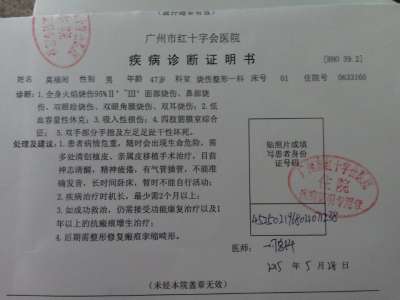 广州市红十字会医院
疾病诊断证明书
[BHO 39.2]
姓名 性别 男 年龄 47岁 科室 烧伤整形一科 床号 01 住院号 0633160
诊断:1.全身火焰烧伤95%Ⅱ°~Ⅲ°面部烧伤、鼻部烧
伤、双眼睑烧伤、双眼角膜烧伤、双耳烧伤;2.低
血容量性休克;3.吸入性损伤;4.四肢筋膜室综合
征;5.双手部分手指及左足足趾干性坏死。
处理及建议:1.患者病情危重,随时会出现生命危险,需
多处清创植皮、亲属皮移植手术治疗,目前
神志清醒,精神疲倦,有气管插管,不能准
确发音,长时间卧床,暂时不能自行活动;
2.疾病治疗时机长,最少需2个月以上;
3.如成功救治,仍需接受功能康复治疗以及1
年以上的抗瘢痕增生治疗;
4.后期需整形修复瘢痕挛缩畸形。
贴照片或填
写患者身份
证号码
医师:
2015 年 5 月 28 日
(未经本院盖章无效)